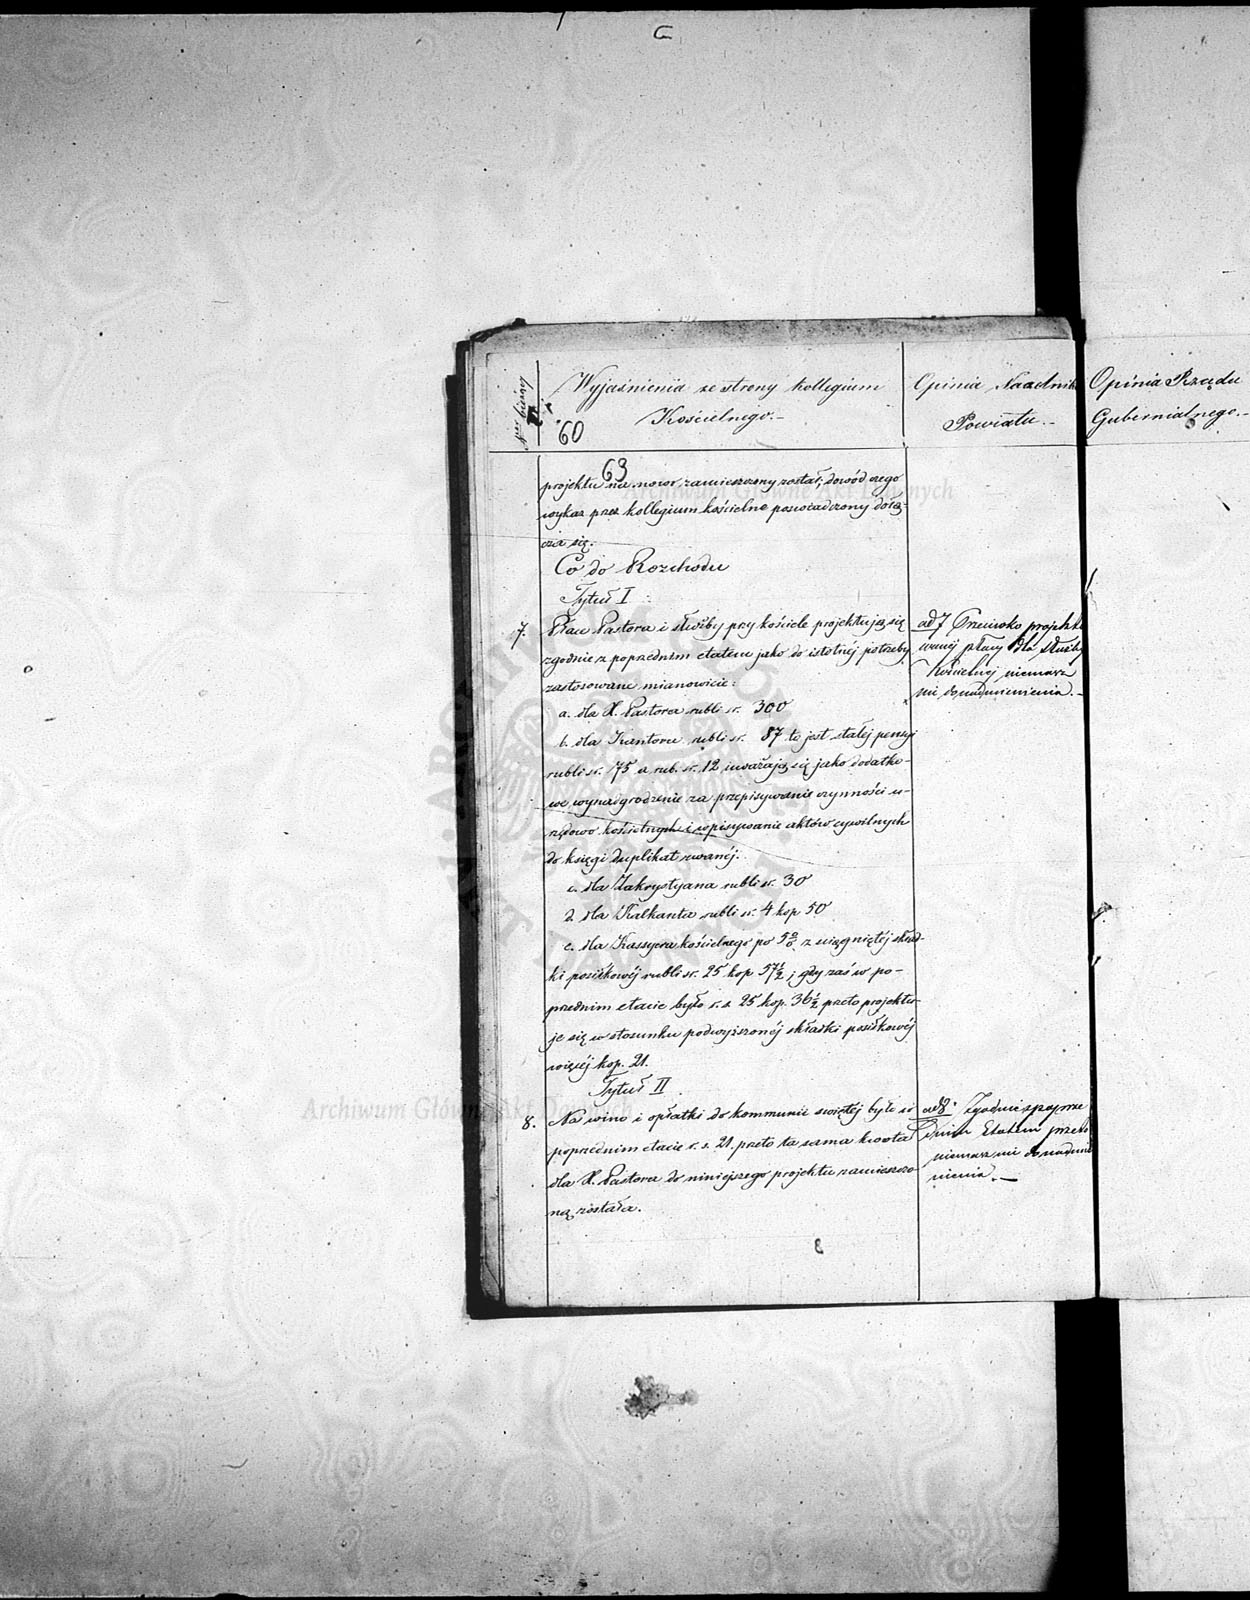 Wyjaśnienia ze strony kollegium
Kościelnego.-
Opinia Naczelnika
Powiatu.-
Opinia Rządu
Gubernialnego.-
60
63
projektu na nowo zamieszczony został; dowód czego
wykaz przez kollegium kościelne poswiadczony dołą-
cza się.
Co do Rozchodu
Tytuł I
7. Płace Pastora i służby przy kościele projektują się
zgodnie z poprzednim etatem jako do istotnéj potrzeby
zastosowane mianowicie:
a. dla X. Pastora rubli sr. 300
b. dla Kantora rubli sr. 87 to jest stałéj pensyi
rubli sr. 75 a rub. sr. 12 uważają się jako dodatko-
we wynagrodzenie za przepisywanie czynności u-
rzędowo kościelnych i wpisywanie aktów cywilnych
do księgi duplikat zwanéj.
c. dla Zakrystyana rubli sr. 30
d. dla Kalkanta rubli sr. 4 kop 50
e. dla Kassyera kościelnego po 5% z sciągniętéj skład-
ki posiłkowéj rubli sr. 25 kop 57½; gdy zaś w po-
przednim etacie było r. s. 25 kop. 36½ przeto projektu-
je się w stosunku podwyższonéj składki posiłkowéj
więcéj kop. 21.
Tytuł II
8. Na wino i opłatki do kommunii świętéj było w
poprzednim etacie r. s. 21. przeto ta sama kwota
dla X. Pastora do niniejszego projektu zamieszczo-
ną została.
ad 7 Przeciwko projekto
wanéj płacy dla służby
kościelnéj niemasz
nic do nadmienienia.-
ad 8. Zgodnie z poprze
dnim Etatem przeto
niemasz nic do nadmie
nienia.-
8
Archiwum Główne Akt Dawnych
Archiwum Główne Akt Dawnych